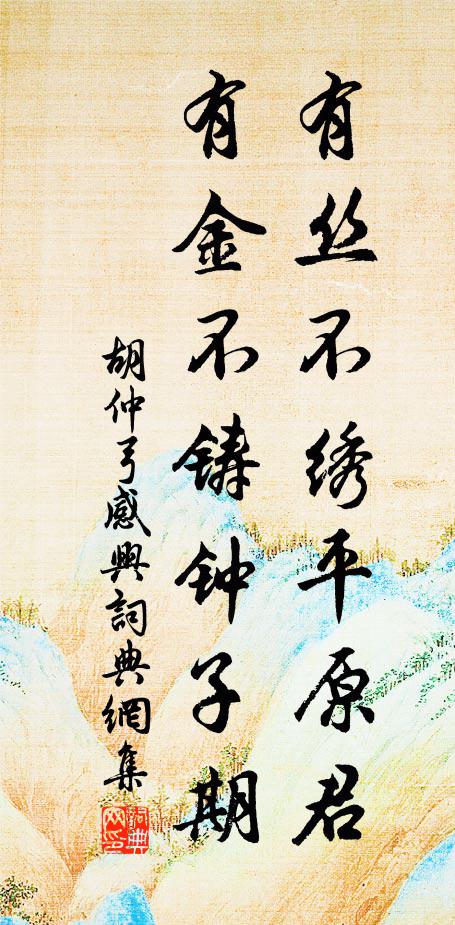 有丝不绣平原君
有金不铸钟子期
胡仲弓感興詞典網集
詞典
网印